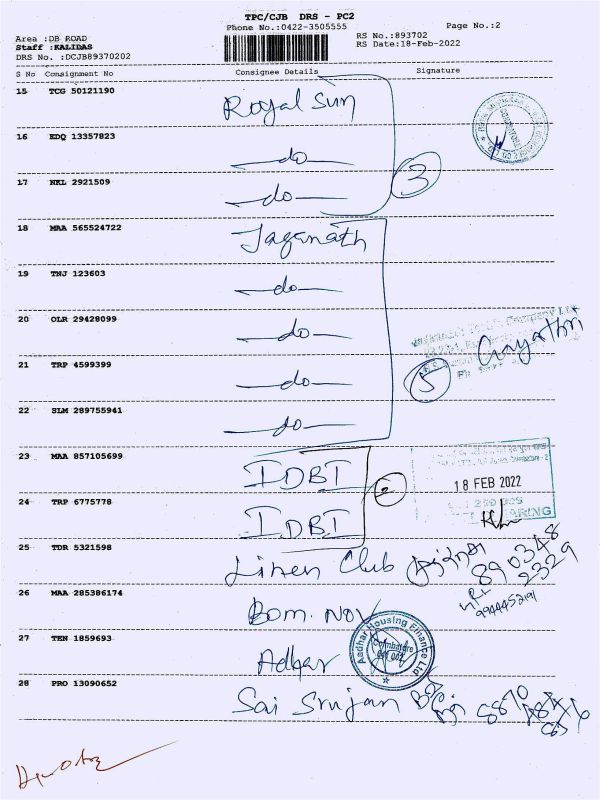 TPC/CJB DRS - PC2
Phone No.:0422-3505555
Page No.:2
Area :DB ROAD
Staff :KALIDAS
DRS No. :DCJB89370202
RS No.:893702
RS Date:18-Feb-2022
S No Consignment No Consignee Details Signature
15 TCG 50121190 Royal Sun
16 EDQ 13357823 —do—
17 NKL 2921509 —do—
3
18 MAA 565524722 Jaganath
19 TNJ 123603 —do—
20 OLR 29428099 —do—
Gayathri
21 TRP 4599399 —do—
5
22 SLM 289755941 —do—
23 MAA 857105699 IDBI
18 FEB 2022
24 TRP 6775778 IDBI
25 TDR 5321598 Linen Club
890348
2329
26 MAA 285386174 Bom. Nov
27 TEN 1859693 Adhar
Aadhar Housing Finance Ltd
Coimbatore
28 PRO 13090652 Sai Srujan